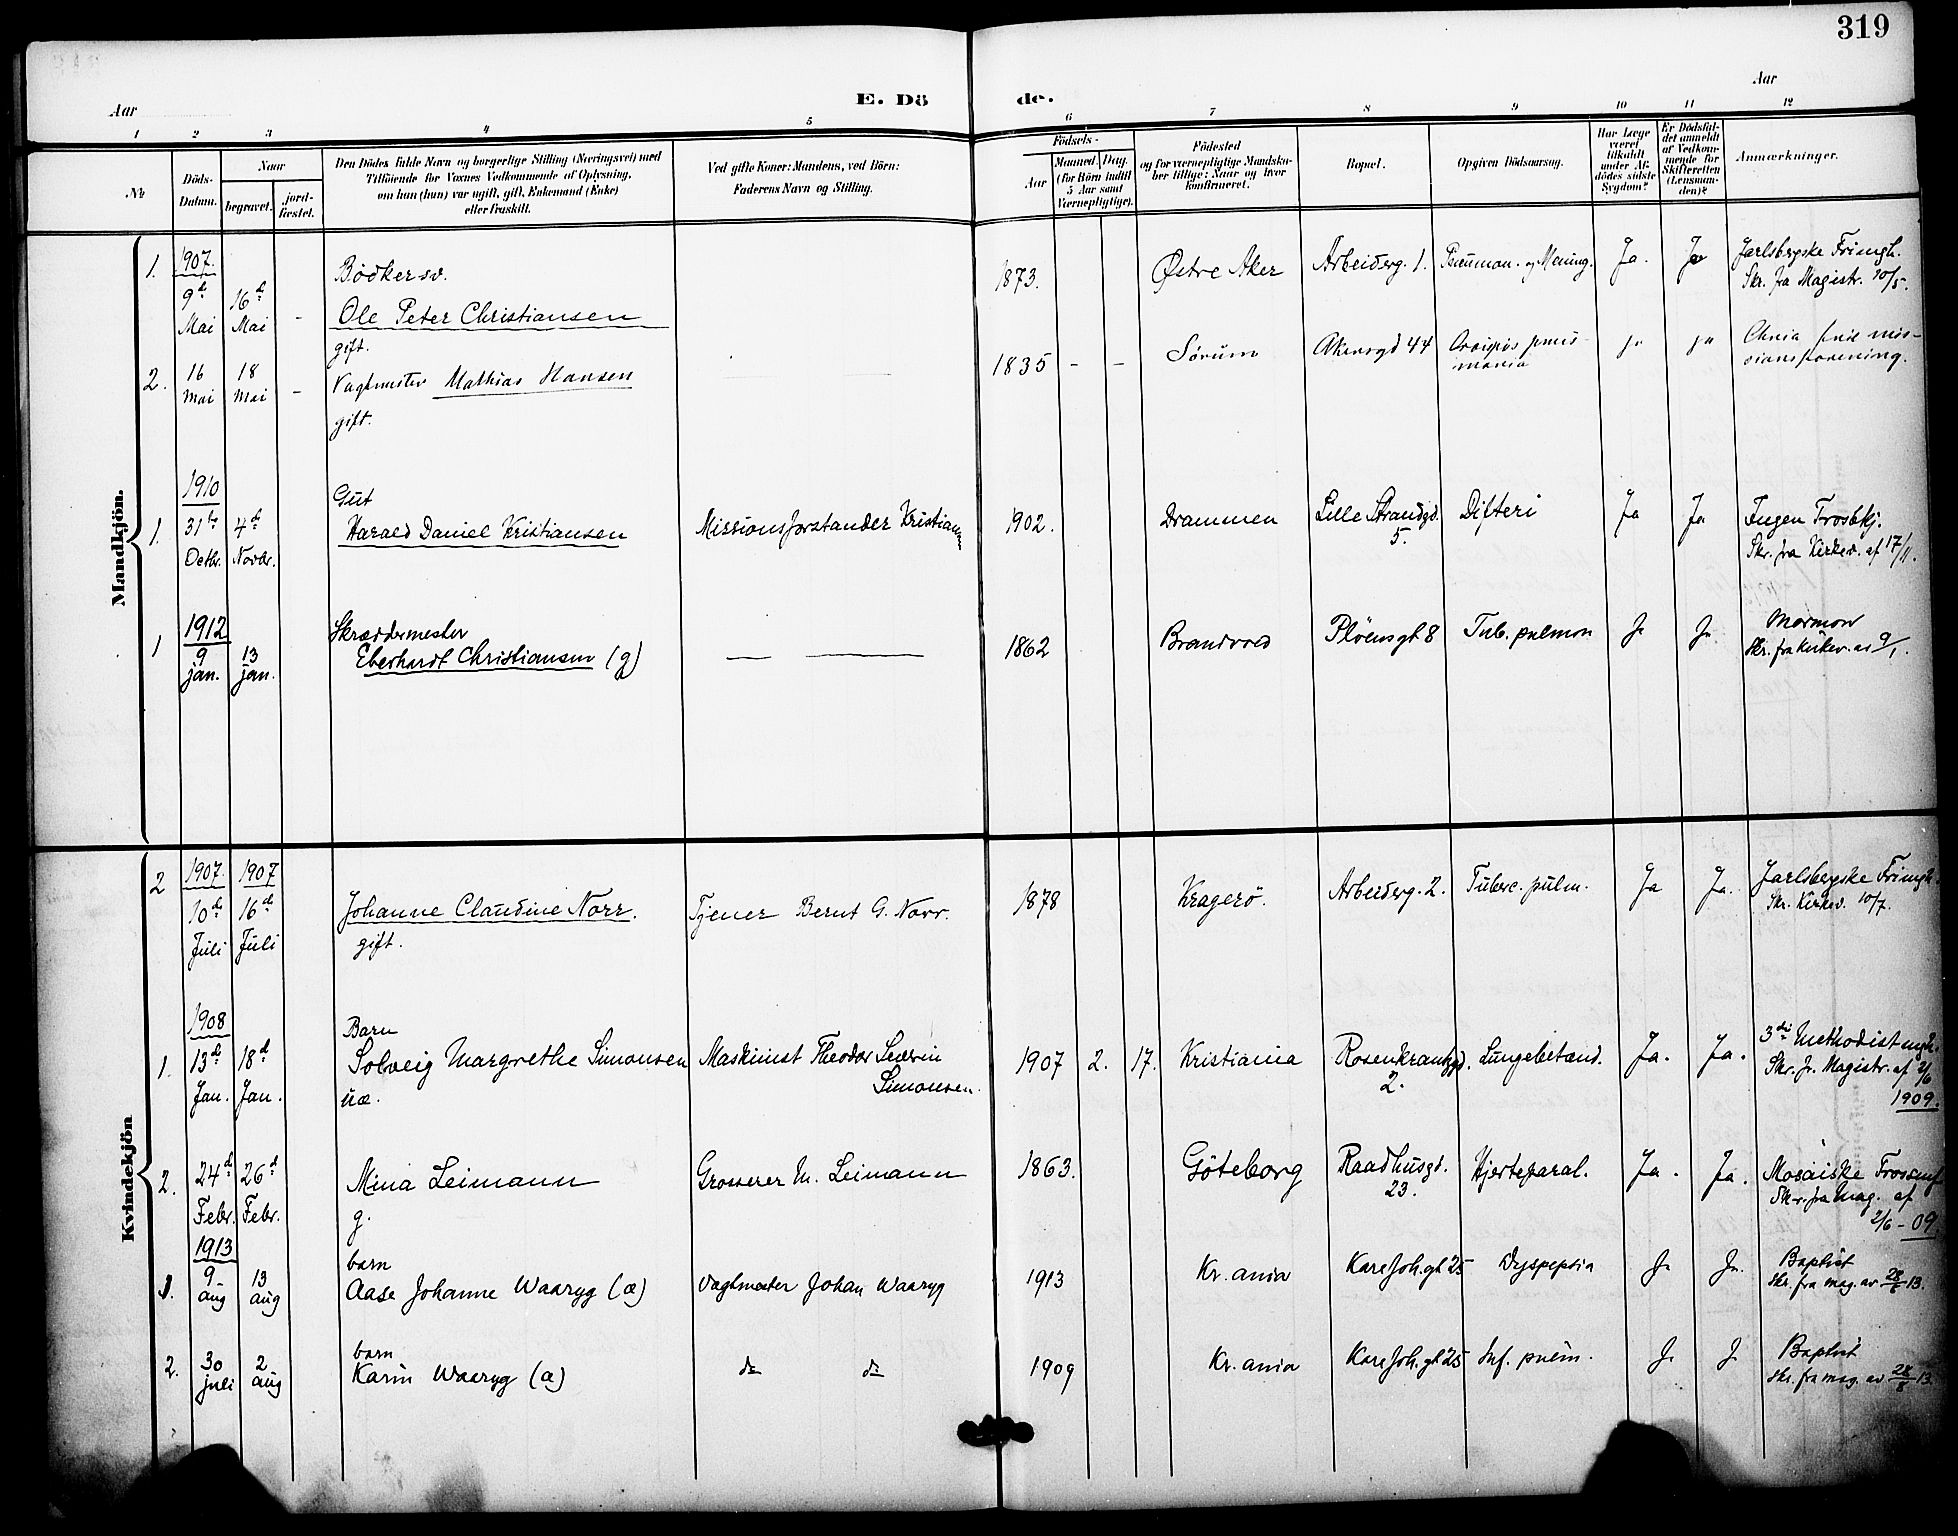 319
Aar
E. Dö
de.
Aar
1 2 3 4 5 6 7 8 9 10 11 12
№
Döds-
Datum.
Naar
begravet.
jord-
fæstet.
Den Dödes fulde Navn og borgerlige Stilling (Næringsvei) med
Tilföiende for Voxnes Vedkommende af Oplysning,
om han (hun) var ugift, gift, Enkemand (Enke)
eller fraskilt.
Ved gifte Koner: Mandens, ved Börn:
Faderens Navn og Stilling.
Födsels-
Aar
Maaned. Dag.
(for Börn indtil
5 Aar samt
Værnepligtige).
Födested
og for værnepligtige Mandska-
ber tillige: Naar og hvor
konfirmeret.
Bopæl.
Opgiven Dödsaarsag.
Har Læge
været
tilkaldt
under Af-
dödes sidste
Sygdom?
Er Dödsfal-
det anmeldt
af Vedkom-
mende for
Skifteretten
(Lensman-
den)?
Anmærkninger.
Mandkjön.
1. 1907. 9de Mai 16de Mai -
Bödkersv.
Ole Peter Christiansen
gift.
1873. Østre Aker Arbeiderg. 1. Pneumon. og Mening. Ja. Ja
Jarlsbergske Frimgh.
Skr. fra Magistr. 10/5.
2. 16 Mai 18 Mai -
Vagtmester Mathias Hansen
gift.
1835 - - Sørum Akersgd 44 pneu-
monia ja ja
Chria fric mis-
sionsforening.
1910
1. 31te Octbr. 4de Novbr.
Gut
Harald Daniel Kristiansen
Missionsforstander Kristiansen
1902. Drammen Lille Strandgd.
5.
Difteri Ja Ja
Ingen Trosbkj.
Skr. fra Kirkev. af 17/11.
1912
1 9 jan. 13 jan.
Skræddermester
Eberhardt Christiansen (g)
1862 Brandvold Pløensgt 8 Tub. pulmon J. J.
Mormon
Skr. fra Kirkev. av 9/1.
Kvindekjön
2 1907. 1907
10de Juli 16de Juli
Johanne Claudine Norr.
gift.
Tjener Bernt G. Norr.
1878 Kragerö. Arbeiderg. 2. Tuberc. pulm. Ja Ja.
Jarlsbergske Frimgh.
Skr. Kirkev. 10/7.
1908
1. 13de Jan. 18de Jan.
Barn
Solveig Margrethe Simonsen
uæ.
Maskinist Theodor Severin
Simonsen.
1907 2. 17. Kristiania Rosenkrantzgd.
2.
Lungebetænd. Ja. Ja.
3die Methodistmgh.
Skr. fr. Magistr. af 2/6
1909.
2. 24de Febr. 26de Febr.
Mina Leimann
g.
Grosserer M. Leimann
1863. Göteborg Raadhusgd.
23.
Hjerteparal. Ja. Ja.
Mosaiske Trossmf
Skr. fra Mag. af
2/6 - 09.
1913
1. 9 - aug 13 aug
barn
Aase Johanne Waaryg (æ)
Vagtmester Johan Waaryg
1913 Kr.ania Karl Joh. gt 25 Dyspepsia J. J.
Baptist
skr. fra mag. av 28/8 13.
2. 30 juli 2 aug
barn
Karin Waaryg (æ)
do do
1909 Kr.ania Karl Joh. gt 25 Inf. pulm. J. J.
Baptist
skr. fra mag. av 28/8 13.